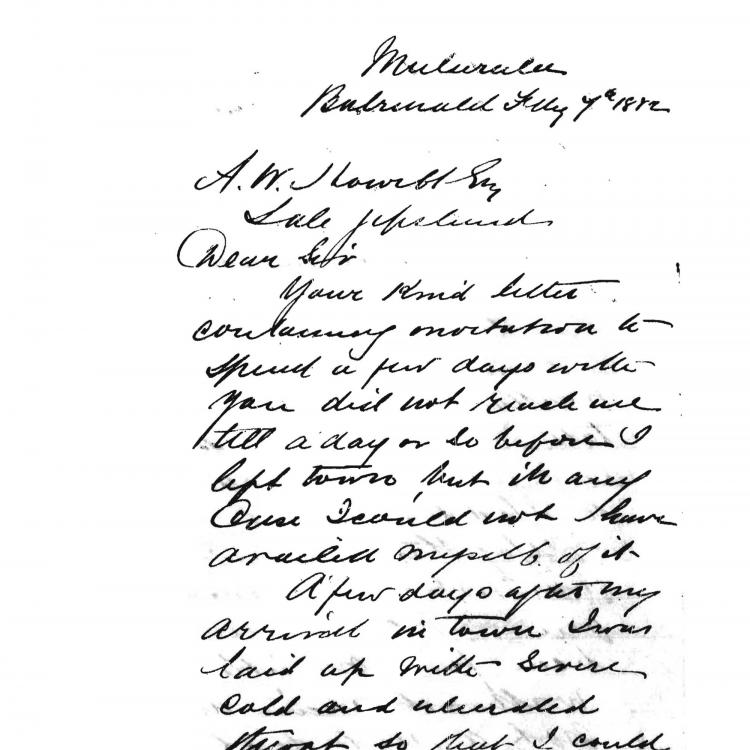 Balranald Feby 7th 1882
A. W. Howitt Esq
Sale Gipsland
Dear Sir
Your Kind letter
containing invitation to
spend a few days with
you did not reach me
till a day or so before I
left town but in any
Case I could not have
availed myself of it
A few days after my
arrival in town I was
laid up with Severe
cold and ulcerated
throat so that I could